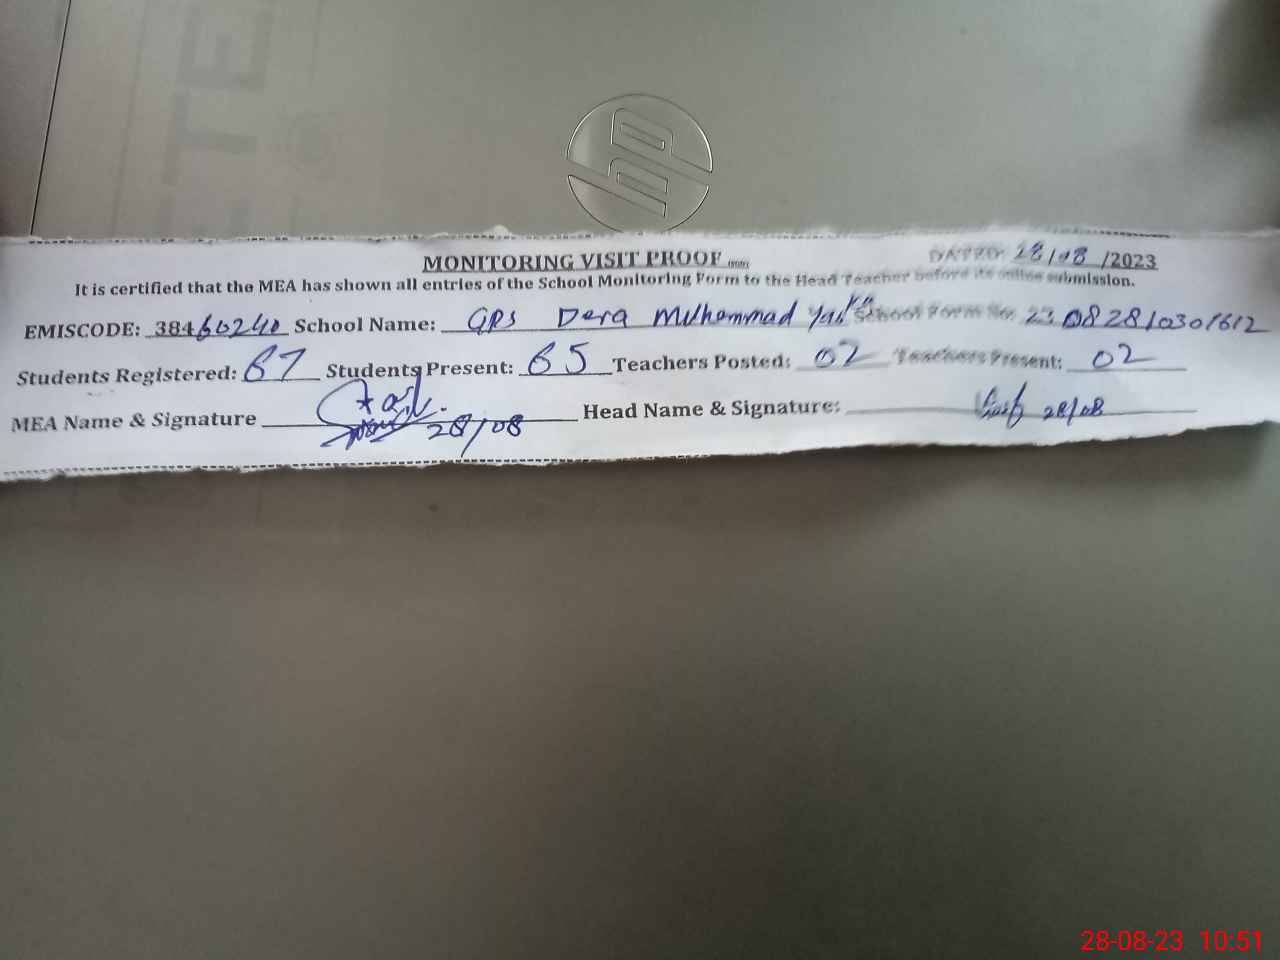 hp
MONITORING VISIT PROOF
DATED: 28/08/2023
It is certified that the MEA has shown all entries of the School Monitoring Form to the Head Teacher before its online submission.
EMISCODE: 38460240 School Name: GPS Dera Muhammad School Form No. 23082810301612
Students Registered: 67 Students Present: 65 Teachers Posted: 02 Teachers Present: 02
MEA Name & Signature 28/08 Head Name & Signature: 28/08
28-08-23 10:51